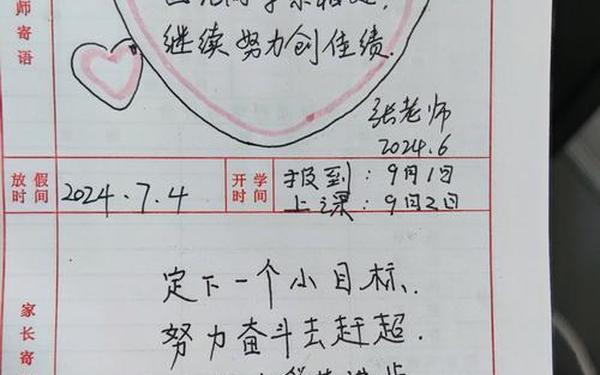 师寄语
继续努力创佳绩.
张老师
2024.6
放假时间
2024.7.4
开学时间
报到:9月1日
上课:9月2日
家长寄
定下一个小目标,
努力奋斗去赶超.